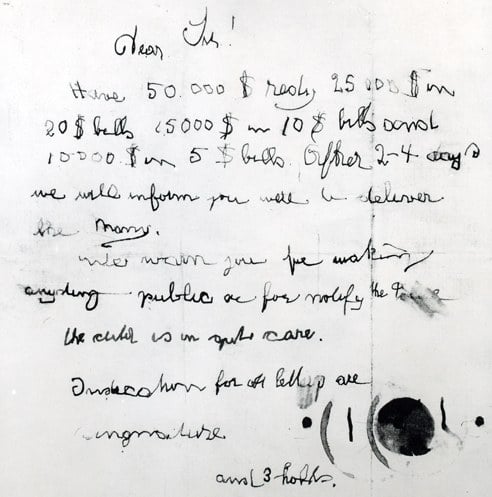 Dear Sir!
Have 50.000 $ redy 25 000 $ in
20 $ bills 15000 $ in 10 $ bills and
10000 $ in 5 $ bills. After 2-4 days
we will inform you were to deliver
the Mony.
We warn you for making
anyding public or for notify the Police
the child is in gute care.
Indication for all letters are
singnature
and 3 holds.